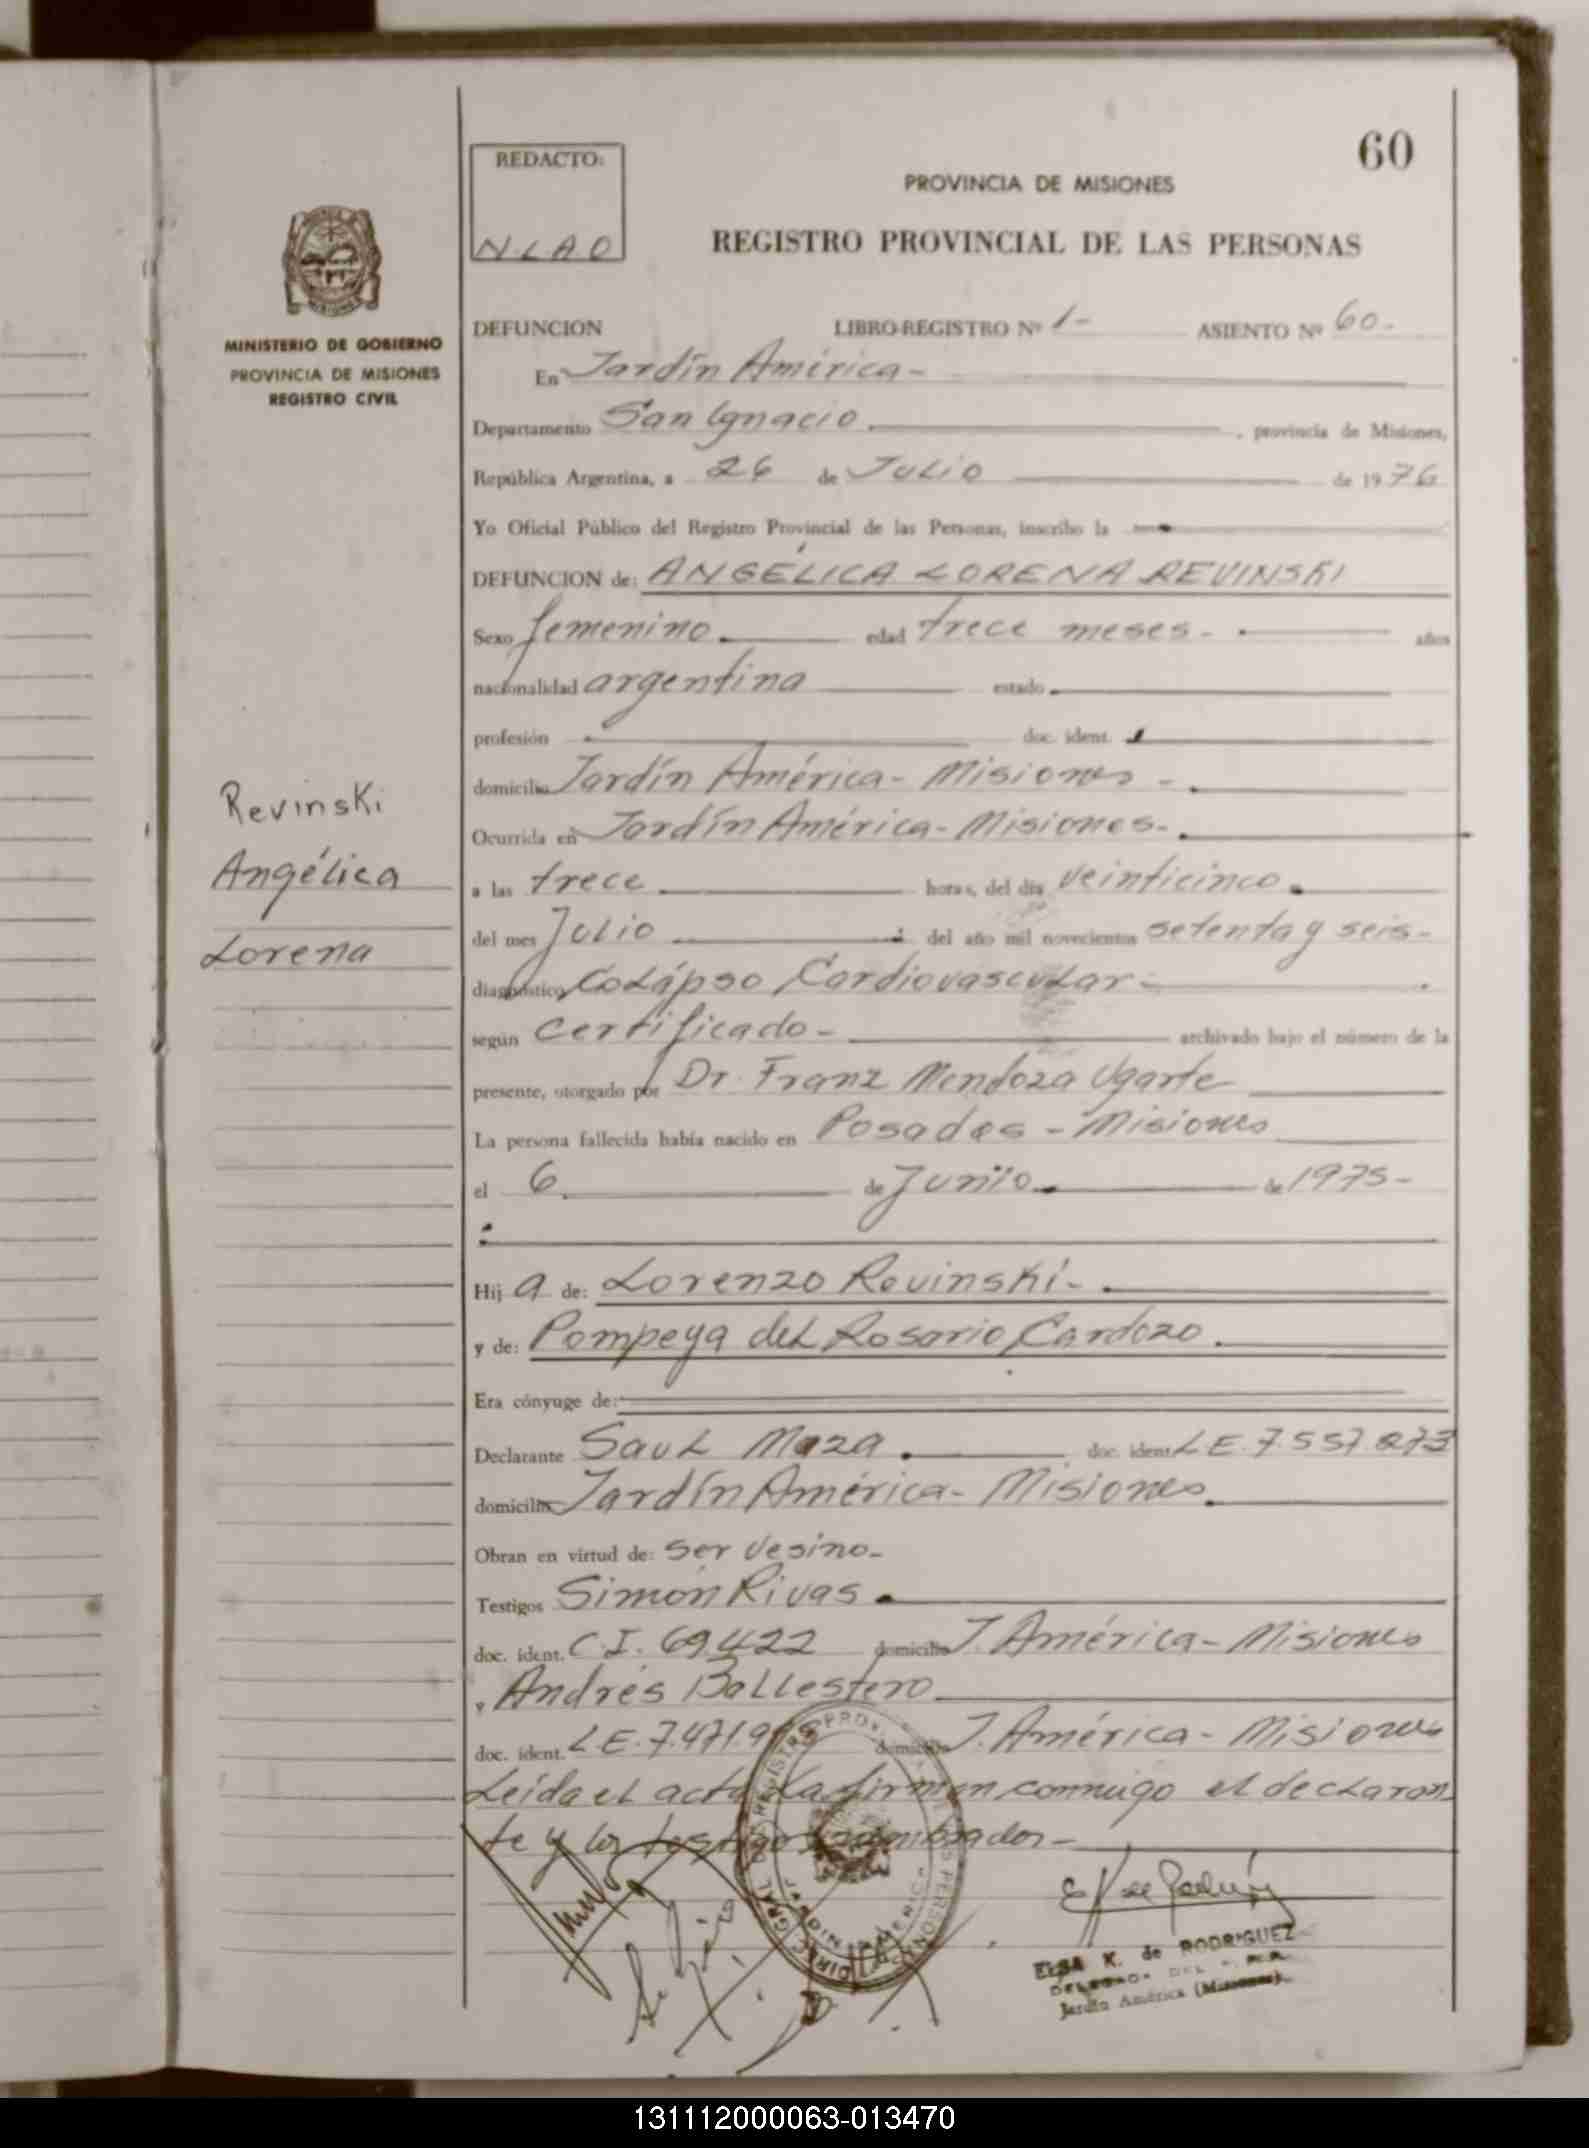 60
REDACTO:
N.L.A.O
PROVINCIA DE MISIONES
REGISTRO PROVINCIAL DE LAS PERSONAS
MINISTERIO DE GOBIERNO
PROVINCIA DE MISIONES
REGISTRO CIVIL
DEFUNCION LIBRO-REGISTRO Nº 1- ASIENTO Nº 60.-
En Jardín América-
Departamento San Ignacio, provincia de Misiones,
República Argentina, a 26 de Julio de 1976
Yo Oficial Público del Registro Provincial de las Personas, inscribo la
DEFUNCION de: ANGÉLICA LORENA REVINSKI
Sexo femenino. edad trece meses- años
nacionalidad argentina estado
profesión doc. ident.
domicilio Jardín América- Misiones-
Revinski
Angélica
Lorena
Ocurrida en Jardín América- Misiones-
a las trece horas, del día veinticinco
del mes Julio del año mil novecientos setenta y seis-
diagnóstico Colápso Cardiovascular-
según certificado- archivado bajo el número de la
presente, otorgado por Dr. Franz Mendoza Ugarte
La persona fallecida había nacido en Posadas - Misiones
el 6 de Junio de 1975-
Hij a de: Lorenzo Revinski-
y de: Pompeya del Rosario Cardozo
Era cónyuge de:
Declarante Saul Maza doc. ident. L E. 7.557.873
domicilio Jardín América- Misiones
Obran en virtud de: ser vesino-
Testigos Simón Rivas
doc. ident. C.I. 69.422 domicilio J. América- Misiones
y Andrés Ballestero
doc. ident. L E. 7.471.9 domicilio J. América- Misiones
Leída el acta la firman conmigo el declaran
te y los testigos nombrados-
ELSA K. de RODRIGUEZ
Jardín América (Misiones)
131112000063-013470